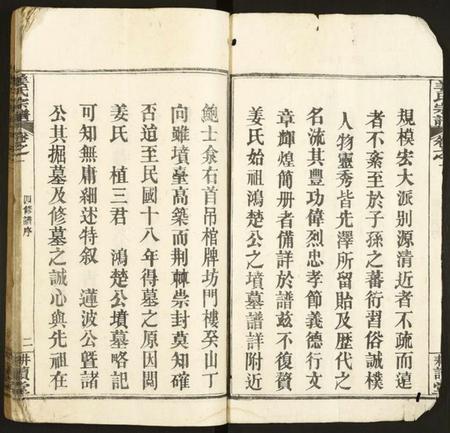 姜氏宗譜
卷之一
規模宏大派別源清近者不疏而遠
者不紊至於子孫之蕃衍習俗誠樸
人物靈秀皆先澤所留貽及歷代之
名流其豐功偉烈忠孝節義德行文
章輝煌簡册者備詳於譜兹不復贅
姜氏始祖鴻楚公之墳墓譜詳附近
鮑士㒰右首吊棺牌坊門樓癸山丁
向雖墳臺高築而荆棘崇封莫知確
否迨至民國十八年得墓之原因閲
姜氏 植三君 鴻楚公墳墓略記
可知無庸細述特叙 蓮波公暨諸
公其掘墓及修墓之誠心與先祖在
姜氏宗譜
卷之一
四修譜序
二
耕讀堂